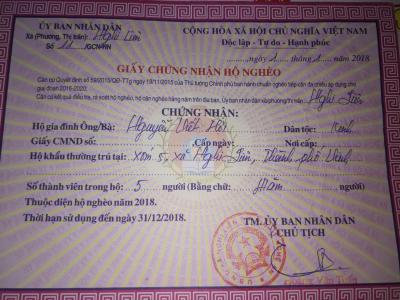 ỦY BAN NHÂN DÂN
CỘNG HÒA XÃ HỘI CHỦ NGHĨA VIỆT NAM
Xã (Phường, Thị trấn):
Độc lập - Tự do - Hạnh phúc
Số: 11 /GCNHN
ngày 1 tháng 1 năm 2018
GIẤY CHỨNG NHẬN HỘ NGHÈO
Căn cứ Quyết định số 59/2015/QĐ-TTg ngày 19/11/2015 của Thủ tướng Chính phủ ban hành chuẩn nghèo tiếp cận đa chiều áp dụng cho giai đoạn 2016-2020;
Căn cứ kết quả điều tra, rà soát hộ nghèo, hộ cận nghèo hàng năm trên địa bàn, Ủy ban nhân dân xã/phường/thị trấn
CHỨNG NHẬN:
Hộ gia đình Ông/Bà: Nguyễn Viết Dân tộc: Kinh
Giấy CMND số: Cấp ngày: Nơi cấp:
Hộ khẩu thường trú tại: xóm 5, xã Nghi thành phố Vinh
Số thành viên trong hộ: 5 người (Bằng chữ: Năm người)
Thuộc diện hộ nghèo năm 2018.
Thời hạn sử dụng đến ngày 31/12/2018.
TM. ỦY BAN NHÂN DÂN
CHỦ TỊCH